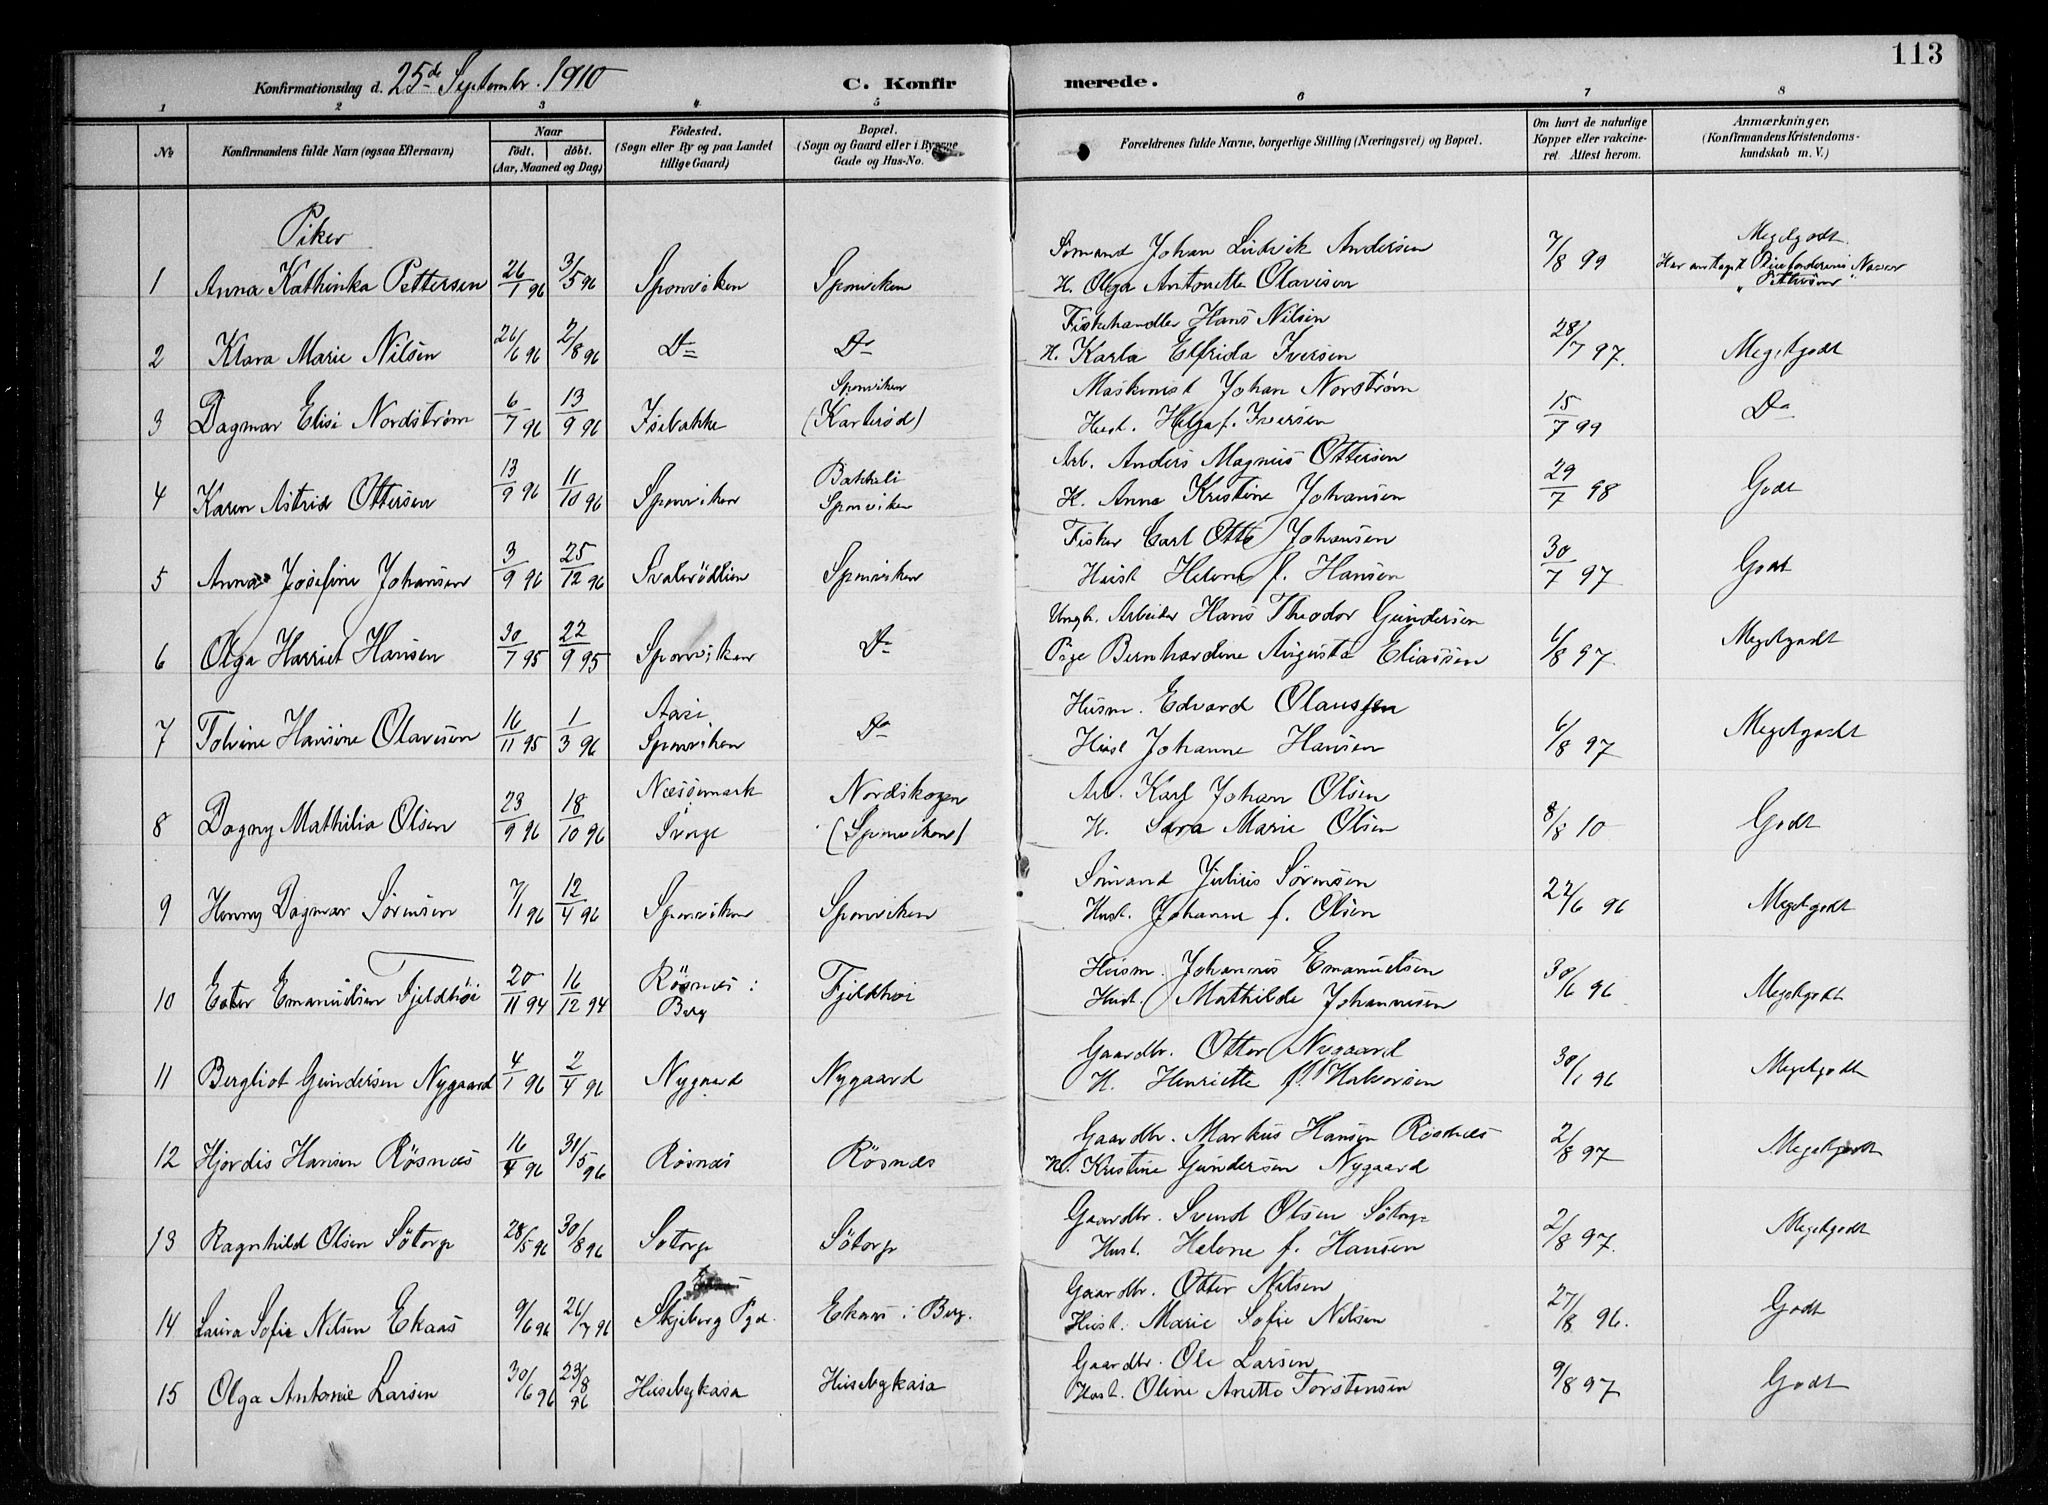 113
Konfirmationsdag d. 25de Septembr. 1910
C. Konfirmerede.
1 2 3 4 5 6 7 8
No
Konfirmandens fulde Navn (ogsaa Efternavn)
Naar
födt. döbt.
(Aar, Maaned og Dag)
Födested.
(Sogn eller By og paa Landet
tillige Gaard)
Bopæl.
(Sogn og Gaard eller i Byerne
Gade og Hus-No.
Forældrenes fulde Navne, borgerlige Stilling (Næringsvei) og Bopæl.
Om havt de naturlige
Kopper eller vakcine-
ret Attest herom.
Anmærkninger,
(Konfirmandens Kristendoms-
kundskab m. V.)
Piker
Sömand Johan Ludvik Andersen
1 Anna Kathinka Pettersen 26/1 96 3/5 96 Sponviken Sponviken H. Olga Antonette Olavisen 7/8 99 Megetgodt.
Har antaget Navn
Fiskehandler Hans Nilsen
2 Klara Marie Nilsen 26/6 96 2/8 96 Do Do H. Karla Elfrida Iversen 28/7 97. Megetgodt
Maskinist Johan Norström
3 Dagmar Elise Nordström 6/7 96 13/9 96 Isebakke Sponviken (Karlsröd) Hust. Helga f. Iversen 15/7 99 Do
Arb. Anders Magnus Ottersen
4 Karen Astrid Ottersen 13/9 96 11/10 96 Sponviken Bakkeli Sponviken H. Anna Kristine Johansen 29/7 98 Godt
Fisker Carl Otto Johansen
5 Anna Josefine Johansen 3/9 96 25/12 96 Svalerödlien Sponviken Hust Helene f. Hansen 30/7 97 Godt
Ungk. Arbeider Hans Theodor Gundersen
6 Olga Harriet Hansen 30/7 95 22/9 95 Sponviken Do Pige Bernhardine Augusta Eliassen 6/8 97. Megetgodt
Husm. Edvard Olaussen
7 Tolvine Hansine Olavesen 16/11 95 1/3 96 Aase Sponviken Do Hust Johanne Hansen 6/8 97 Megetgodt
Arb. Karl Johan Olsen
8 Dagny Mathilia Olsen 23/9 96 18/10 96 Næssemark Sverge Nordskogen (Sponviken) H. Sara Marie Olsen 8/8 10 Godt
Sömand Julius Sörensen
9 Henny Dagmar Sörensen 7/1 96 12/4 96 Sponviken Sponviken Hust. Johanne f. Olsen 22/6 96 Megetgodt
Husm. Johannes Emanuelsen
10 Ester Emanuelsen Fjeldhöi 20/11 94 16/12 94 Rösnes i Berg Fjeldhöi Hust. Mathilde Johannesen 30/6 96 Megetgodt
Gaardbr. Otter Nygaard
11 Bergliot Gundersen Nygaard 4/1 96 2/4 96 Nygaard Nygaard H. Henriette f. Halvorsen 30/1 96 Megetgodt
Gaardbr. Markus Hansen Rösnæs
12 Hjördis Hansen Rösnæs 16/4 96 31/5 96 Rösnæs Rösnæs H. Kristine Gundersen Nygaard 2/8 97 Megetgodt
Gaardbr. Svend Olsen Sötorp
13 Ragnhild Olsen Sötorp 28/5 96 30/8 96 Sotorp Sötorp Hust. Helene f. Hansen 2/8 97. Megetgodt
Gaardbr. Otter Nilsen
14 Laura Sofie Nilsen Ekaas 9/6 96 26/7 96 Skjeberg Pgd. Ekaas i Berg. Hust. Marie Sofie Nilsen 27/8 96. Godt
Gaardbr. Ole Larsen
15 Olga Antonie Larsen 30/6 96 23/8 96 Husebykasa Husebykasa Hust. Oline Anette Torstensen 9/8 97 Godt